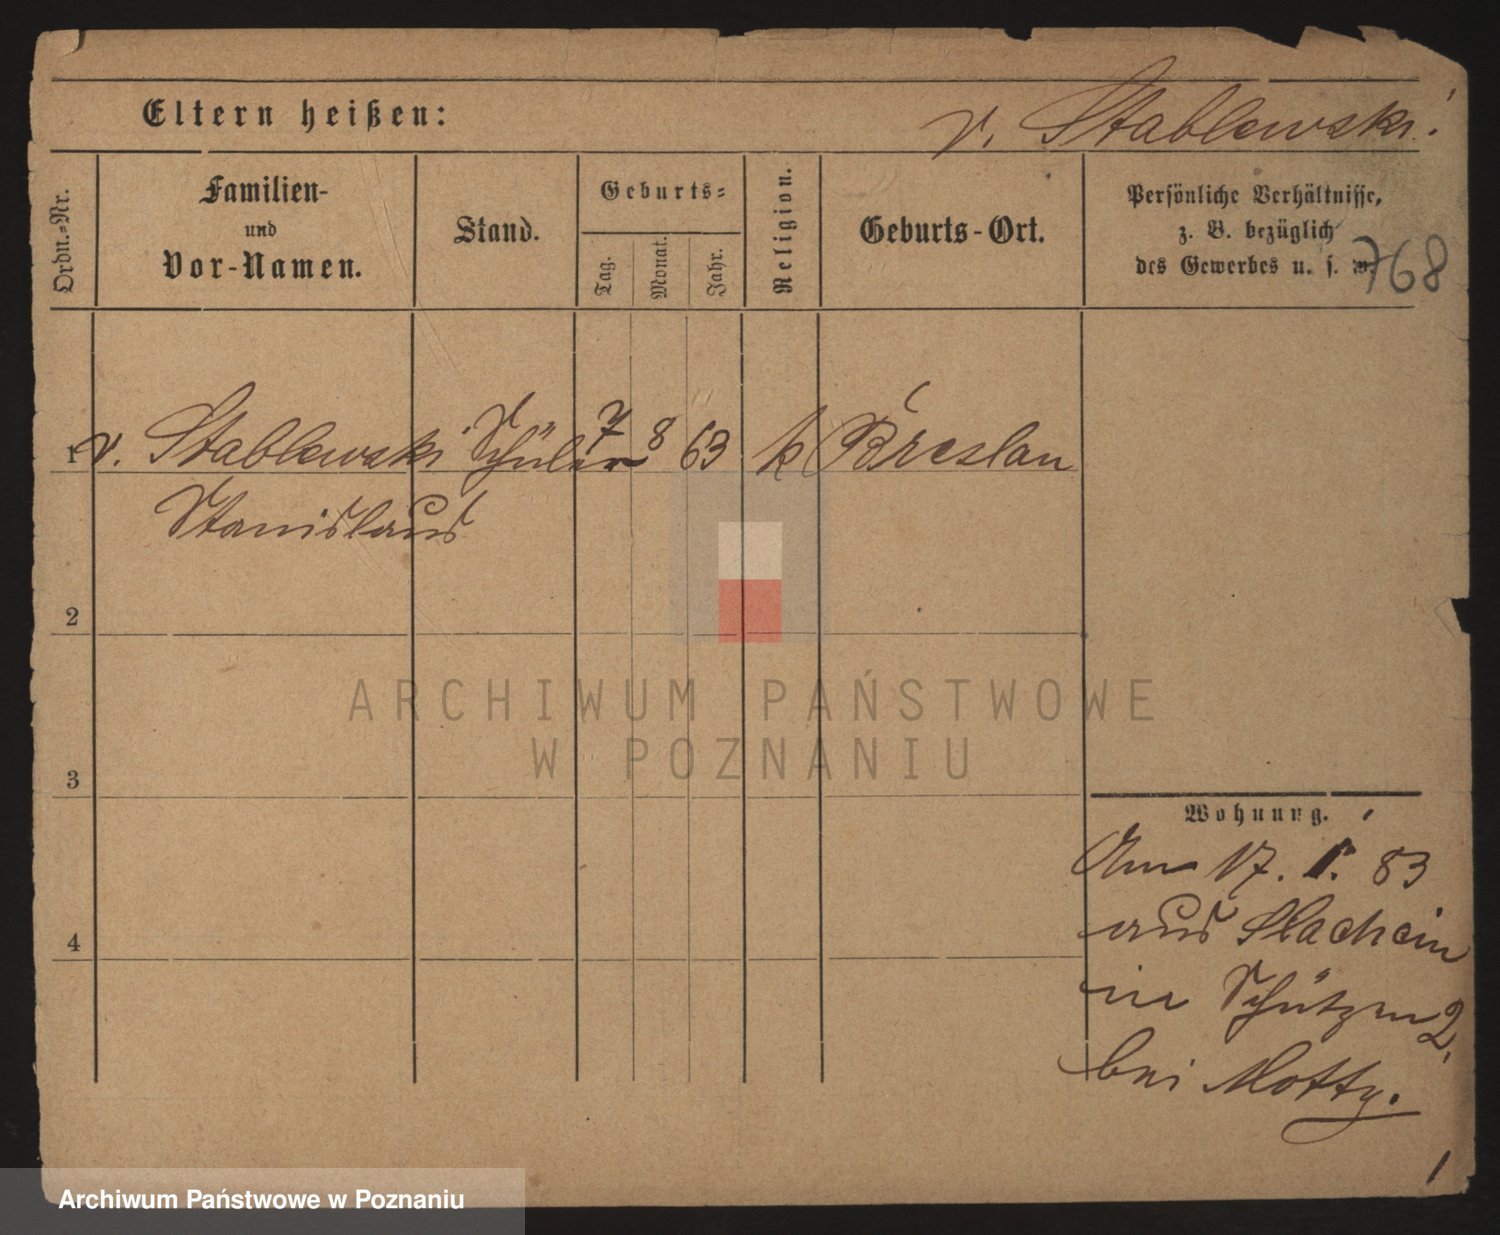 Eltern heißen:
v. Stablewski.
Ordn.-Nr.
Familien-
und
Vor-Namen.
Stand.
Geburts-
Tag.
Monat.
Jahr.
Religion.
Geburts-Ort.
Persönliche Verhältnisse,
z. B. bezüglich
des Gewerbes u. s. w.
768
1 v. Stablewski Schüler 7 8 63 k Breslau
Stanislaus
2
3
4
Wohnung.
Am 17. 1. 83
aus Slachcin
in Schützen 2,
bei Motty.
1
ARCHIWUM PAŃSTWOWE
W POZNANIU
Archiwum Państwowe w Poznaniu